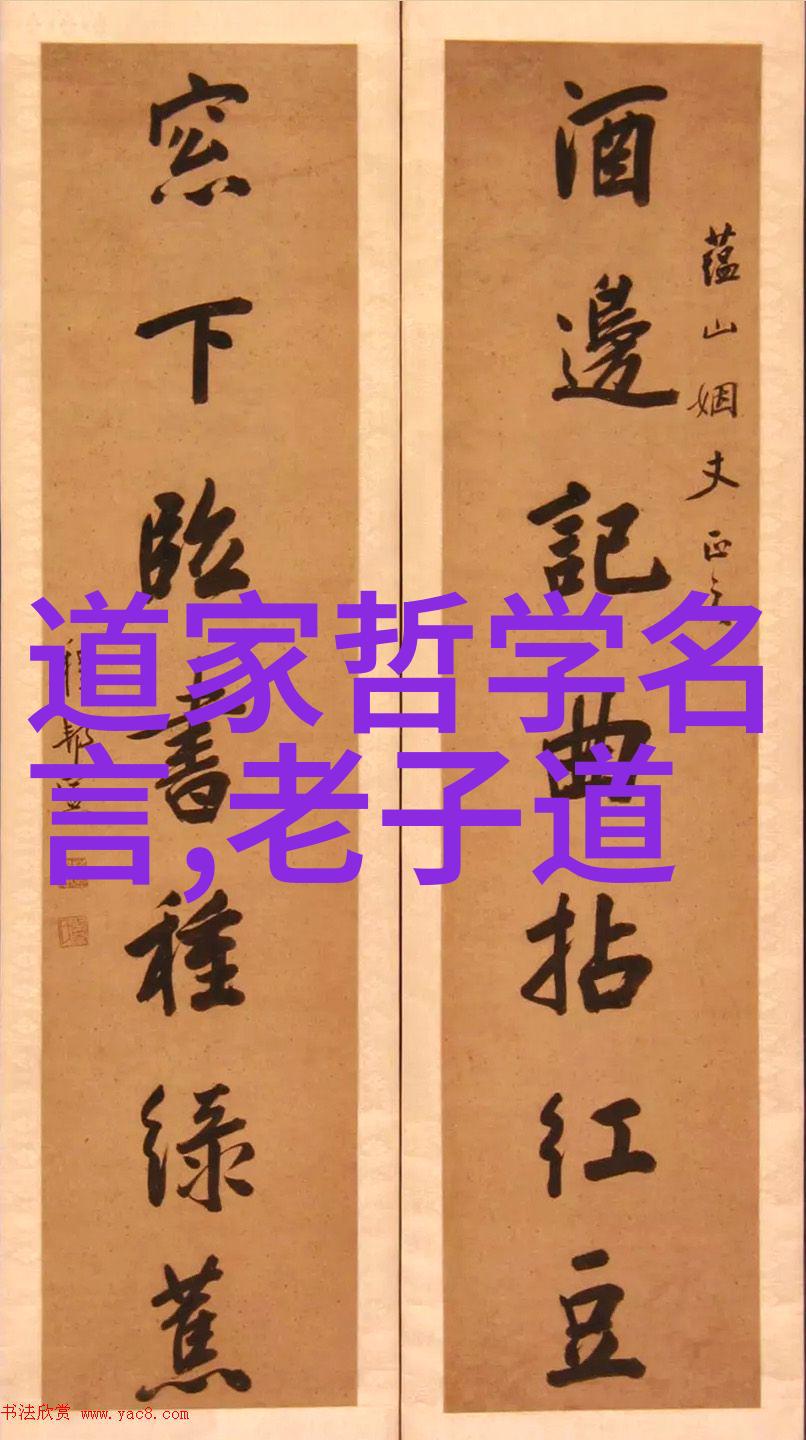 蕴山姻丈正之
酒邊記曲拈紅豆
窓下臨書種綠蕉
道家哲学名
言,老子道
书法欣赏 www.yac8.com